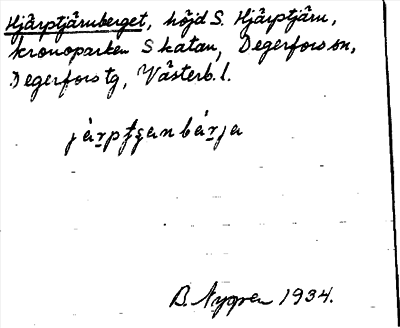 Hjärptjärnberget, höjd S. Hjärptjärn,
kronoparken Skatan, Degerfors sn,
Degerfors tg, Västerb. l.
B. Nygren 1934.